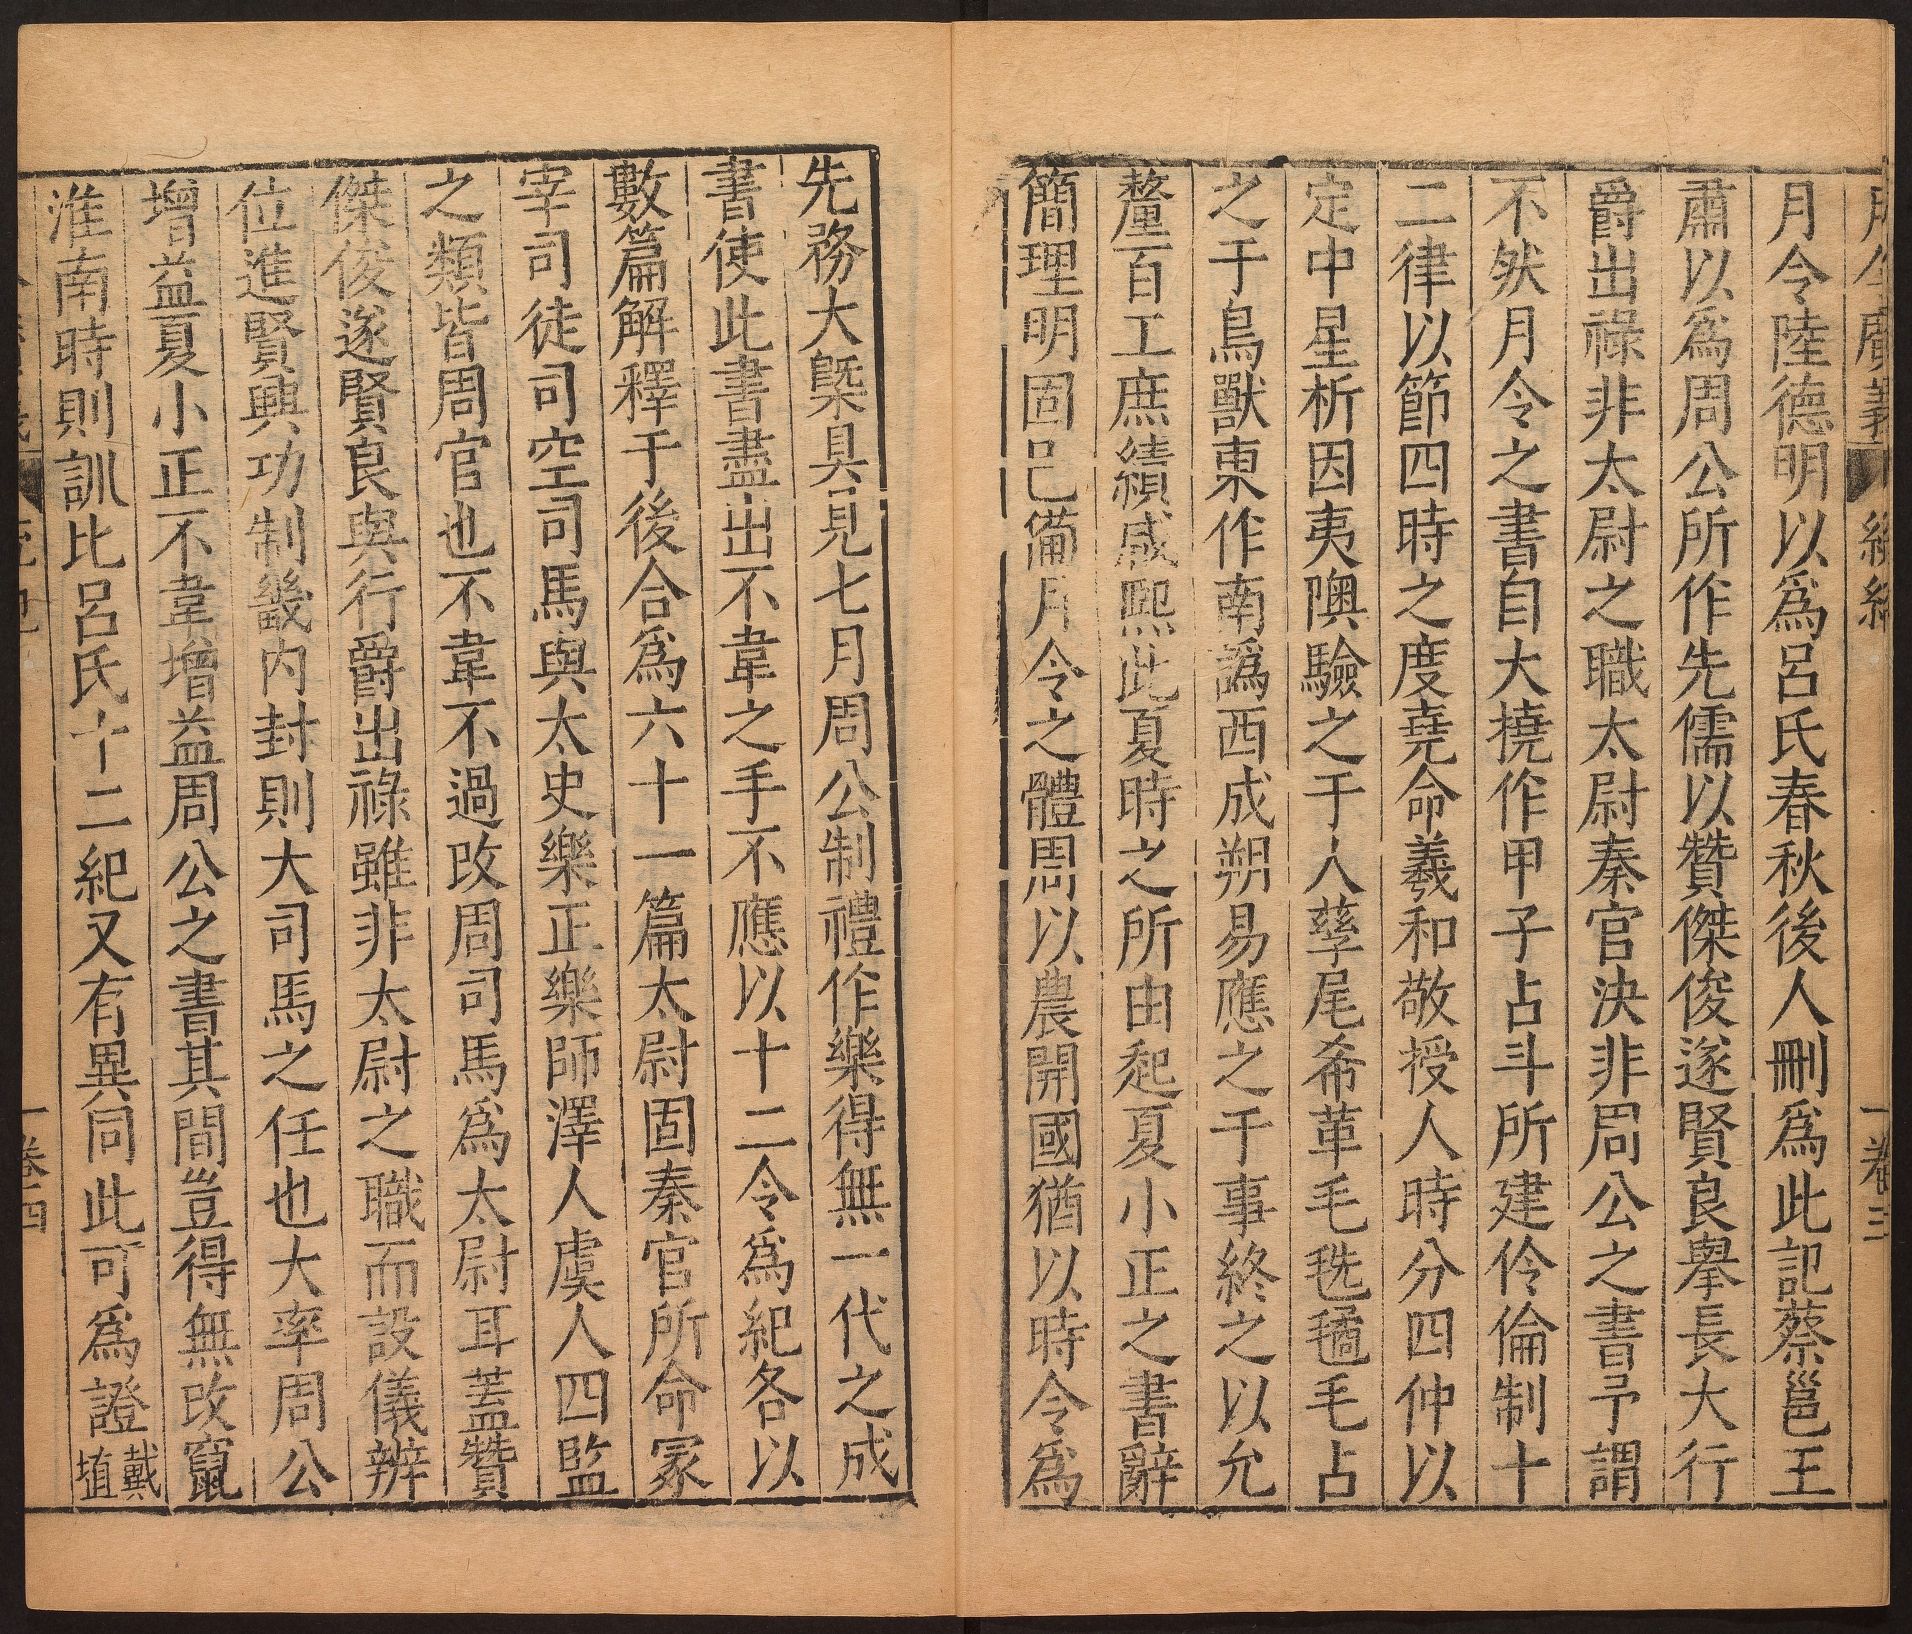 月令廣義
總紀
一卷三
月令陸德明以爲呂氏春秋後人刪爲此記蔡邕王
肅以爲周公所作先儒以贊傑俊遂賢良舉長大行
爵出祿非太尉之職太尉秦官決非周公之書予謂
不然月令之書自大撓作甲子占斗所建伶倫制十
二律以節四時之度堯命羲和敬授人時分四仲以
定中星析因夷隩驗之于人孳尾希革毛毨氄毛占
之于鳥獸東作南譌西成朔易應之于事終之以允
釐百工庶績咸熙此夏時之所由起夏小正之書辭
簡理明固已備月令之體周以農開國猶以時令爲
先務大槩具見七月周公制禮作樂得無一代之成
書使此書盡出不韋之手不應以十二令爲紀各以
數篇解釋于後合爲六十一篇太尉固秦官所命冢
宰司徒司空司馬與太史樂正樂師澤人虞人四監
之類皆周官也不韋不過改周司馬爲太尉耳蓋贊
傑俊遂賢良與行爵出祿雖非太尉之職而設儀辨
位進賢興功制畿內封則大司馬之任也大率周公
增益夏小正不韋增益周公之書其間豈得無改竄
淮南時則訓比呂氏十二紀又有異同此可爲證戴埴
一卷四